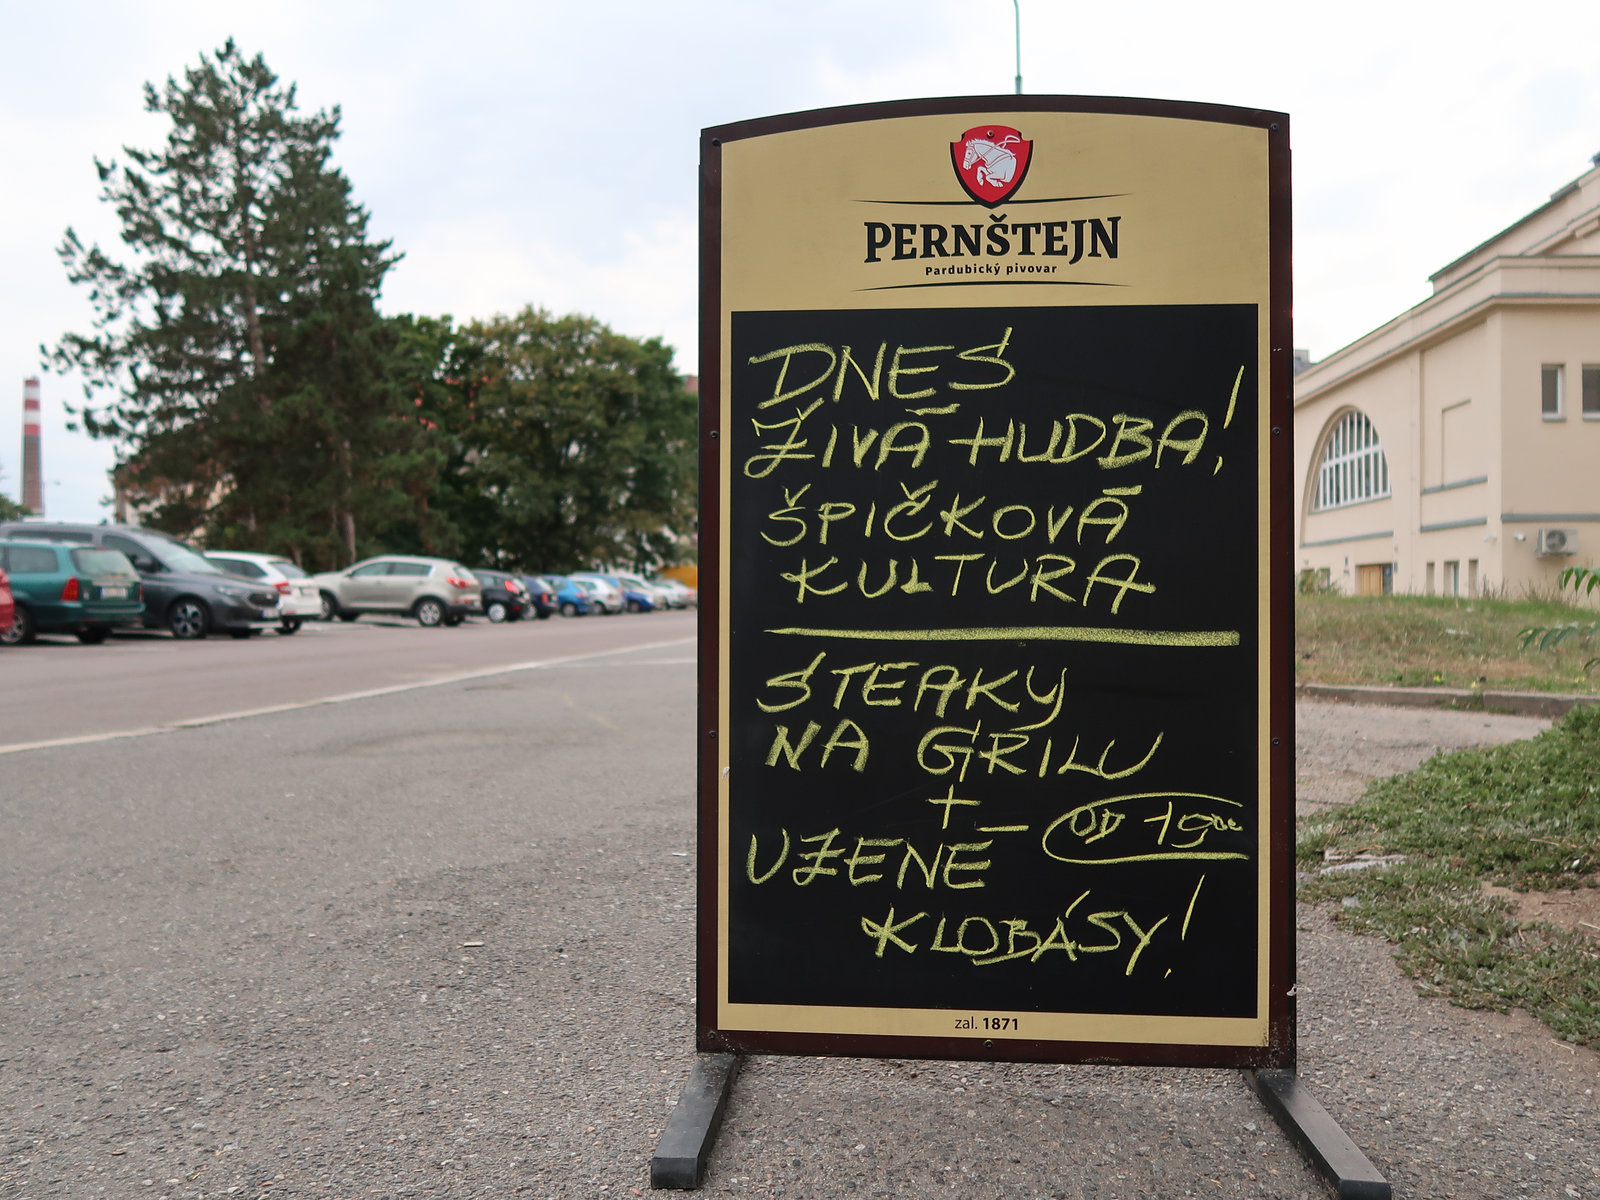 PERNŠTEJN
Pardubický pivovar
DNES
ŽIVÁ HUDBA!
ŠPIČKOVÁ
KULTURA
STEAKY
NA GRILU
+
OD 19:00
UZENÉ
KLOBÁSY!
zal. 1871